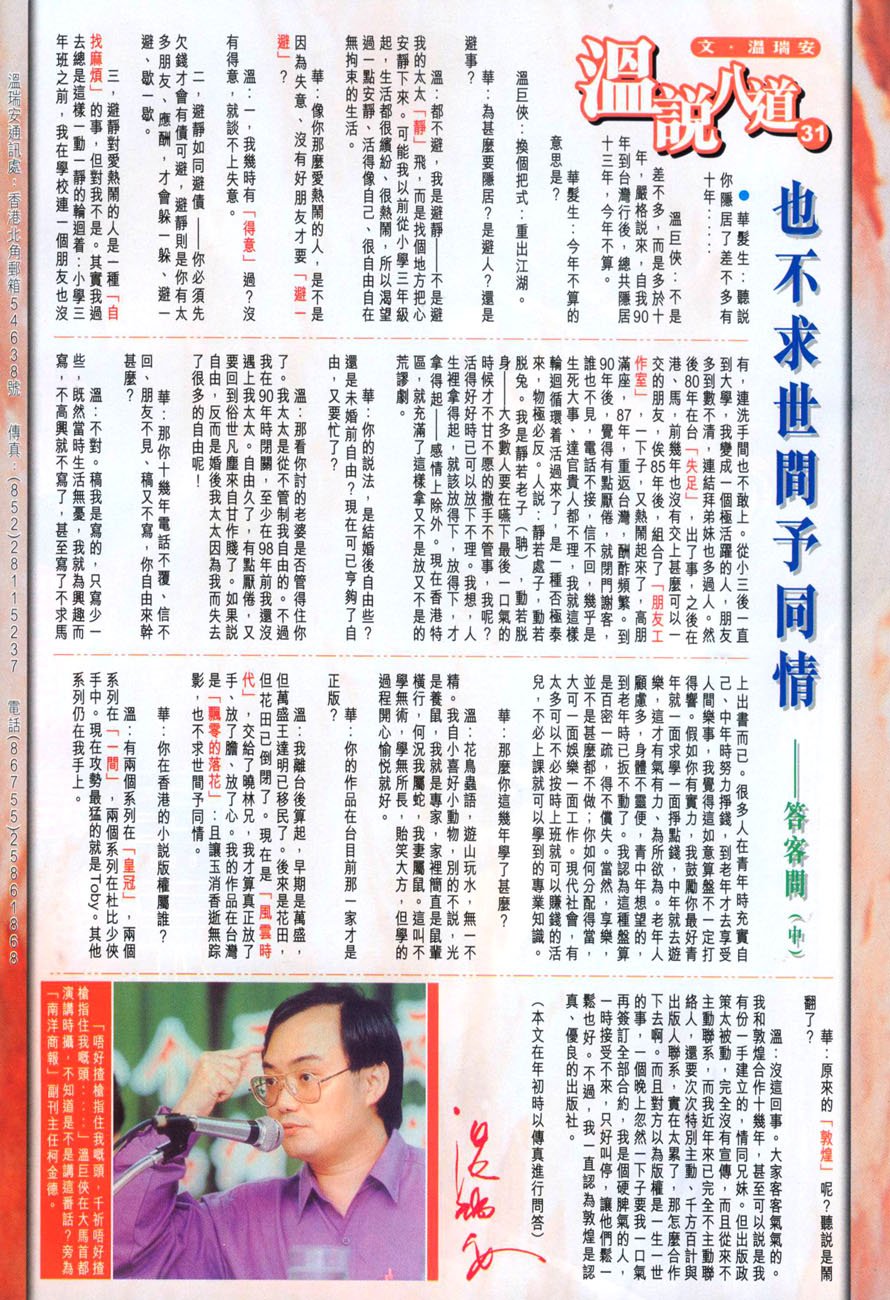 文·溫瑞安
溫說八道
31
也不求世間予同情
——答客問（中）
●華髮生：聽說
你隱居了差不多有
十年……
溫巨俠：不是
差不多，而是多於十
年，嚴格說來，自我90
年到台灣行後，總共隱居
十三年，今年不算。
華髮生：今年不算的
意思是？
溫巨俠：換個把式：重出江湖。
華：為甚麼要隱居？是避人？還是
避事？
溫：都不避，我是避靜——不是避
我的太太「靜」飛，而是找個地方把心
安靜下來。可能我以前從小學三年級
起，生活都很繽紛、很熱鬧，所以渴望
過一點安靜、活得像自己、很自由自在
無拘束的生活。
華：像你那麼愛熱鬧的人，是不是
因為失意、沒有好朋友才要「避一
避」？
溫：一，我幾時有「得意」過？沒
有得意，就談不上失意。
二，避靜如同避債——你必須先
欠錢才會有債可避，避靜則是你有太
多朋友、應酬，才會躲一躲、避一
避、歇一歇。
三，避靜對愛熱鬧的人是一種「自
找麻煩」的事，但對我不是。其實我過
去總是這樣一動一靜的輪迴着：小學三
年班之前，我在學校連一個朋友也沒
有，連洗手間也不敢上。從小三後一直
到大學，我變成一個極活躍的人，朋友
多到數不清，連結拜弟妹也多過人。然
後80年在台「失足」，出了事，之後在
港、馬，前幾年也沒有交上甚麼可以一
交的朋友，俟85年後，組合了「朋友工
作室」，一下子，又熱鬧起來了，高朋
滿座，87年，重返台灣，酬酢頻繁。到
90年後，覺得有點厭倦，就閉門謝客，
誰也不見，電話不接，信不回，幾乎是
生死大事、達官貴人都不理，我就這樣
輪迴循環着活過來了，是一種否極泰
來，物極必反。人說：靜若處子，動若
脫兔。我是靜若老子（聃），動若脫
身——大多數人要在嚥下最後一口氣的
時候才不甘不愿的撒手不管事，我呢？
活得好好時已可以放下不理。我想，人
生裡拿得起，就該放得下，放得下，才
拿得起——感情上除外。現在香港特
區，就充滿了這樣拿又不是放又不是的
荒謬劇。
華：你的說法，是結婚後自由些？
還是未婚前自由？現在可已享夠了自
由，又要忙了？
溫：那看你討的老婆是否管得住你
了。我太太是從不管制我自由的。不過
我在90年時閉關，至少在98年前我還沒
遇上我太太。自由久了，有點厭倦，又
要回到俗世凡塵來自甘作賤了。如果說
自由，反而是婚後我太太因為我而失去
了很多的自由呢！
華：那你十幾年電話不覆、信不
回、朋友不見、稿又不寫，你自由來幹
甚麼？
溫：不對。稿我是寫的，只寫少一
些，既然當時生活無憂，我就為興趣而
寫，不高興就不寫了，甚至寫了不求馬
上出書而已。很多人在青年時充實自
己、中年時努力掙錢，到老年才去享受
人間樂事，我覺得這如意算盤不一定打
得響。假如你有實力，我鼓勵你最好青
年就一面求學一面掙點錢，中年就去遊
樂，這才有氣有力、為所欲為。老年人
顧慮多，身體不靈便，青中年想望的，
到老年時已扳不動了。我認為這種盤算
是百密一疏，得不償失。當然，享樂，
並不是甚麼都不做；你如何分配得當，
大可一面娛樂一面工作。現代社會，有
太多可以不必按時上班就可以賺錢的活
兒，不必上課就可以學到的專業知識。
華：那麼你這幾年學了甚麼？
溫：花鳥蟲語，遊山玩水，無一不
精。我自小喜好小動物，別的不說，光
是養鼠，我就是專家，家裡簡直是鼠輩
橫行，何況我屬蛇，我妻屬鼠。這叫不
學無術，學無所長，貽笑大方，但學的
過程開心愉悅就好。
華：你的作品在台目前那一家才是
正版？
溫：我離台後算起，早期是萬盛，
但萬盛王達明已移民了。後來是花田，
但花田已倒閉了。現在是「風雲時
代」，交給了曉林兄，我才算真正放了
手、放了膽、放了心。我的作品在台灣
是「飄零的落花」：且讓玉消香逝無踪
影，也不求世間予同情。
華：你在香港的小說版權屬誰？
溫：有兩個系列在「皇冠」，兩個
系列在「一間」，兩個系列在杜比少俠
手中。現在攻勢最猛的就是Toby。其他
系列仍在我手上。
華：原來的「敦煌」呢？聽說是鬧
翻了？
溫：沒這回事。大家客客氣氣的。
我和敦煌合作十幾年，甚至可以說是我
有份一手建立的，情同兄妹。但出版政
策太被動，完全沒有宣傳，而且從來不
主動聯系，而我近年來已完全不主動聯
絡人，還要次次特別主動、千方百計與
出版人聯系，實在太累了，那怎麼合作
下去啊。而且對方以為版權是一生一世
的事，一個晚上忽然一下子要我一口氣
再簽訂全部合約，我是個硬脾氣的人，
一時接受不來，只好叫停，讓他們鬆一
鬆也好。不過，我一直認為敦煌是認
真、優良的出版社。
（本文在年初時以傳真進行問答）
溫瑞安
「唔好揸槍指住我嘅頭，千祈唔好揸
槍指住我嘅頭……」溫巨俠在大馬首都
演講時攝，不知道是不是講這番話？旁為
「南洋商報」副刊主任柯金德。
溫瑞安通訊處：香港北角郵箱54638號　傳真：(852)28115237　電話(86755)25861868